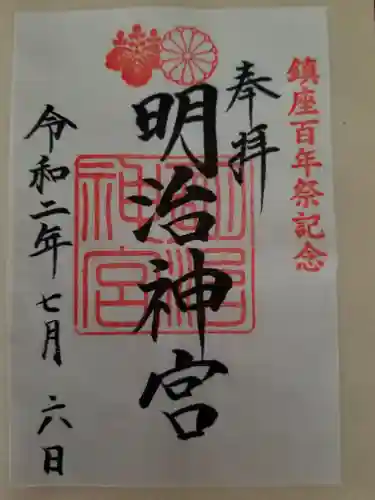 鎮座百年祭記念
奉拝
明治神宮
明治神宮
令和二年七月六日